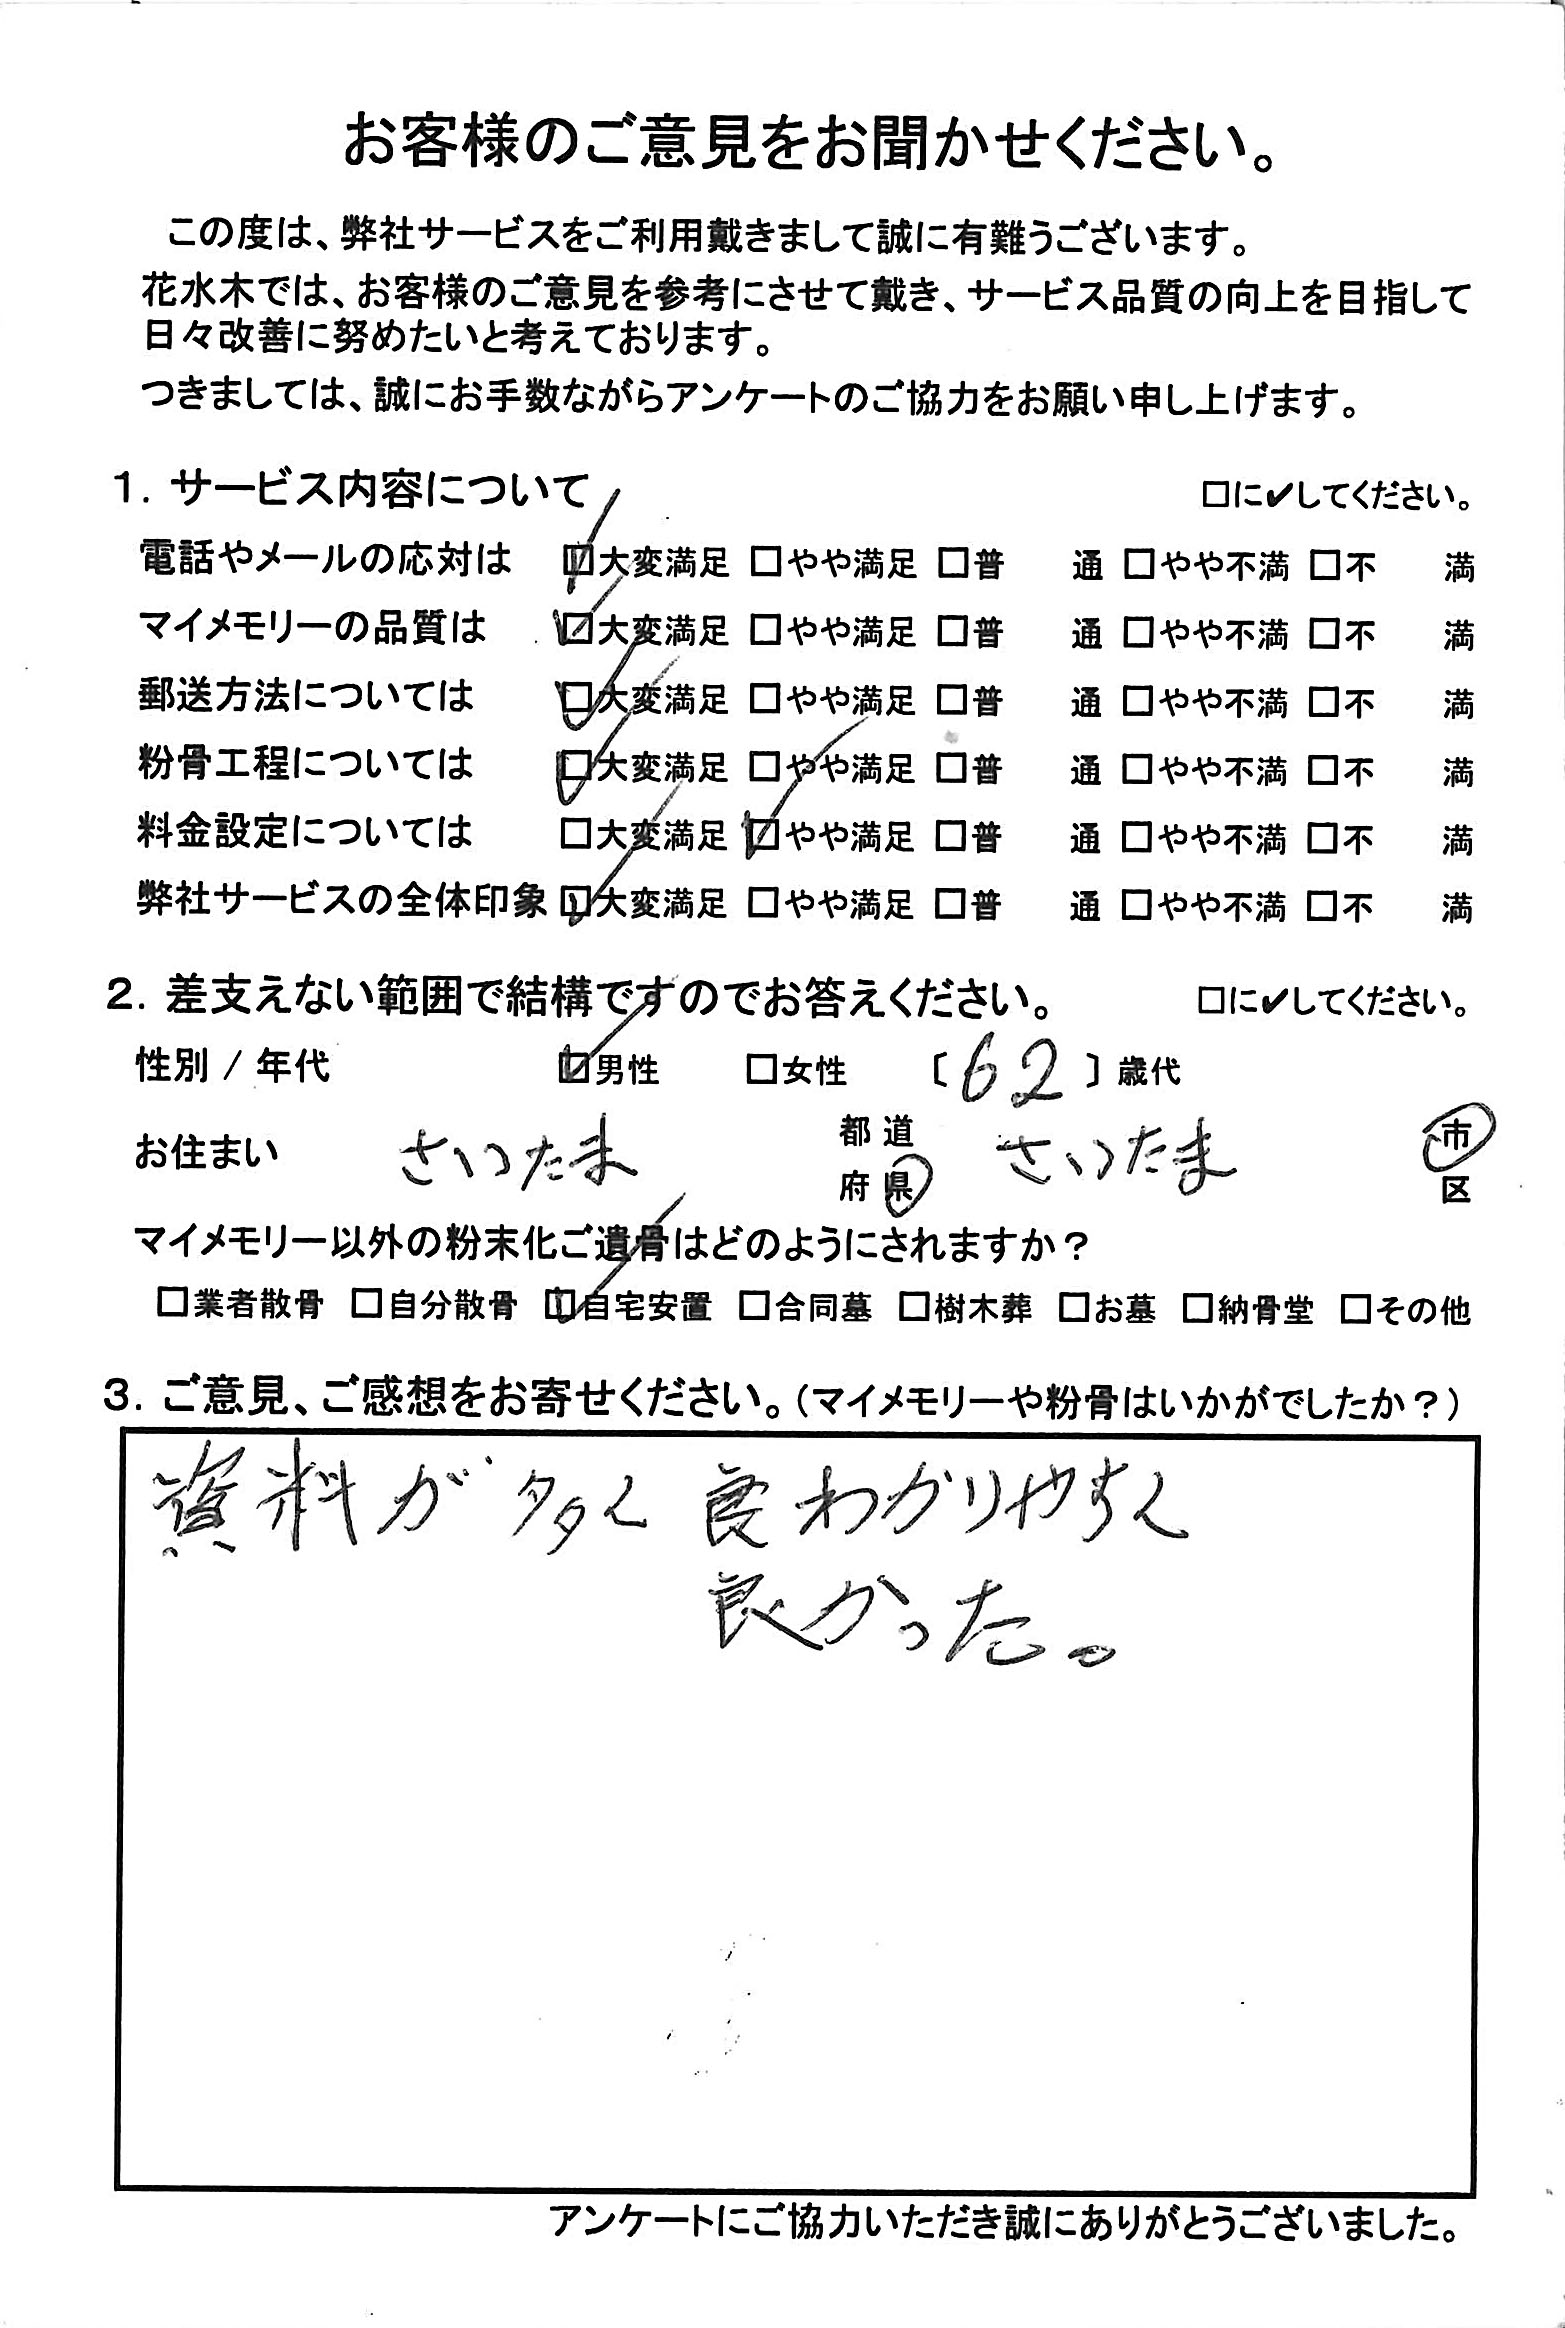 お客様のご意見をお聞かせください。
この度は、弊社サービスをご利用戴きまして誠に有難うございます。
花水木では、お客様のご意見を参考にさせて戴き、サービス品質の向上を目指して
日々改善に努めたいと考えております。
つきましては、誠にお手数ながらアンケートのご協力をお願い申し上げます。
1. サービス内容について □に✔してください。
電話やメールの応対は ☑大変満足 □やや満足 □普 通 □やや不満 □不 満
マイメモリーの品質は ☑大変満足 □やや満足 □普 通 □やや不満 □不 満
郵送方法については ☑大変満足 □やや満足 □普 通 □やや不満 □不 満
粉骨工程については ☑大変満足 □やや満足 □普 通 □やや不満 □不 満
料金設定については □大変満足 ☑やや満足 □普 通 □やや不満 □不 満
弊社サービスの全体印象 ☑大変満足 □やや満足 □普 通 □やや不満 □不 満
2. 差支えない範囲で結構ですのでお答えください。 □に✔してください。
性別 / 年代 ☑男性 □女性 〔 62 〕歳代
お住まい さいたま 都道府県 さいたま 市区
マイメモリー以外の粉末化ご遺骨はどのようにされますか？
□業者散骨 □自分散骨 ☑自宅安置 □合同墓 □樹木葬 □お墓 □納骨堂 □その他
3. ご意見、ご感想をお寄せください。（マイメモリーや粉骨はいかがでしたか？）
資料が多く 良わかりやすく
良かった。
アンケートにご協力いただき誠にありがとうございました。